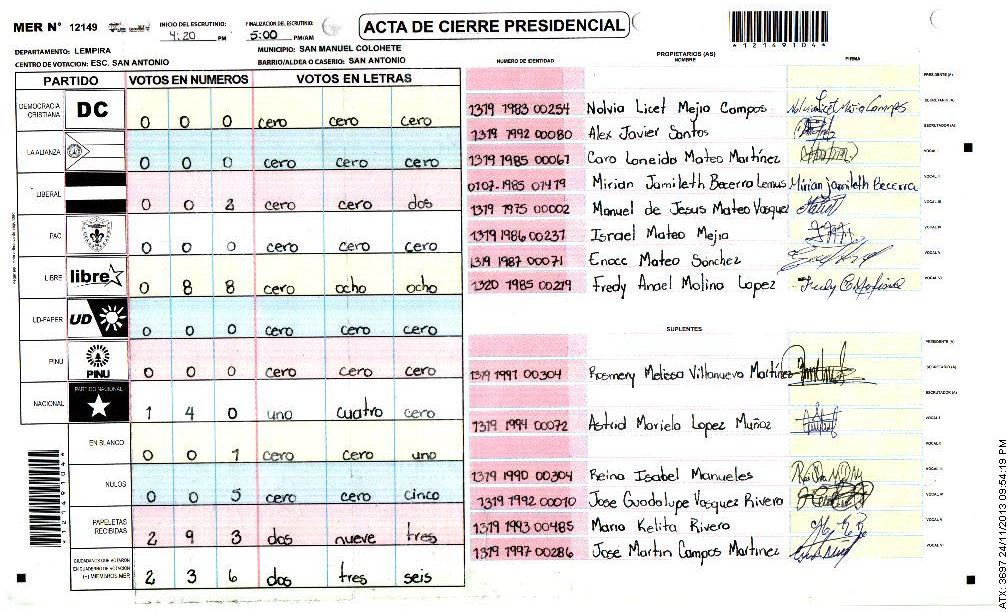 MER N° 12149
INICIO DEL ESCRUTINIO: 4:20 PM
FINALIZACION DEL ESCRUTINIO: 5:00 PM/AM
ACTA DE CIERRE PRESIDENCIAL
*121491044*
DEPARTAMENTO: LEMPIRA
MUNICIPIO: SAN MANUEL COLOHETE
CENTRO DE VOTACION: ESC. SAN ANTONIO
BARRIO/ALDEA O CASERIO: SAN ANTONIO
PARTIDO VOTOS EN NUMEROS VOTOS EN LETRAS
DEMOCRACIA CRISTIANA DC 0 0 0 cero cero cero
LA ALIANZA 0 0 0 cero cero cero
LIBERAL 0 0 2 cero cero dos
PAC 0 0 0 cero cero cero
LIBRE libre 0 8 8 cero ocho ocho
UD-FAPER UD 0 0 0 cero cero cero
PINU PINU 0 0 0 cero cero cero
NACIONAL PARTIDO NACIONAL 1 4 0 uno cuatro cero
EN BLANCO 0 0 1 cero cero uno
NULOS 0 0 5 cero cero cinco
PAPELETAS RECIBIDAS 2 9 3 dos nueve tres
CIUDADANOS QUE VOTARON EN CUADERNO DE VOTACION (+) MIEMBROS MER 2 3 6 dos tres seis
*121491044*
PROPIETARIOS (AS)
NUMERO DE IDENTIDAD NOMBRE FIRMA
PRESIDENTE (A)
1319 1983 00254 Nolvia Licet Mejia Campos Nolvia Licet Mejia Campos SECRETARIO (A)
1319 1992 00080 Alex Javier Santos ESCRUTADOR (A)
1319 1985 00067 Caro Loneida Mateo Martínez VOCAL I
0107-1985 01419 Mirian Jamileth Becerra Lemus Mirian jamileth Becerra VOCAL II
1319 1975 00002 Manuel de Jesus Mateo Vasquez VOCAL III
1319 1986 00237 Israel Mateo Mejia VOCAL IV
1319 1987 00071 Enoc Mateo Sanchez VOCAL V
1320 1985 00219 Fredy Anael Molina Lopez VOCAL VI
SUPLENTES
PRESIDENTE (A)
1319 1997 00304 Rosmery Melissa Villanueva Martínez SECRETARIO (A)
ESCRUTADOR (A)
1319 1994 00072 Astrid Mariela Lopez Muñoz VOCAL I
VOCAL II
1319 1990 00304 Reina Isabel Manueles VOCAL III
1319 1992 00010 Jose Guadalupe Vasquez Rivera VOCAL IV
1319 1993 00485 Maria Kelita Rivera VOCAL V
1319 1997 00286 Jose Martin Campos Martinez VOCAL VI
ATX: 3697 24/11/2013 09:54:19 PM